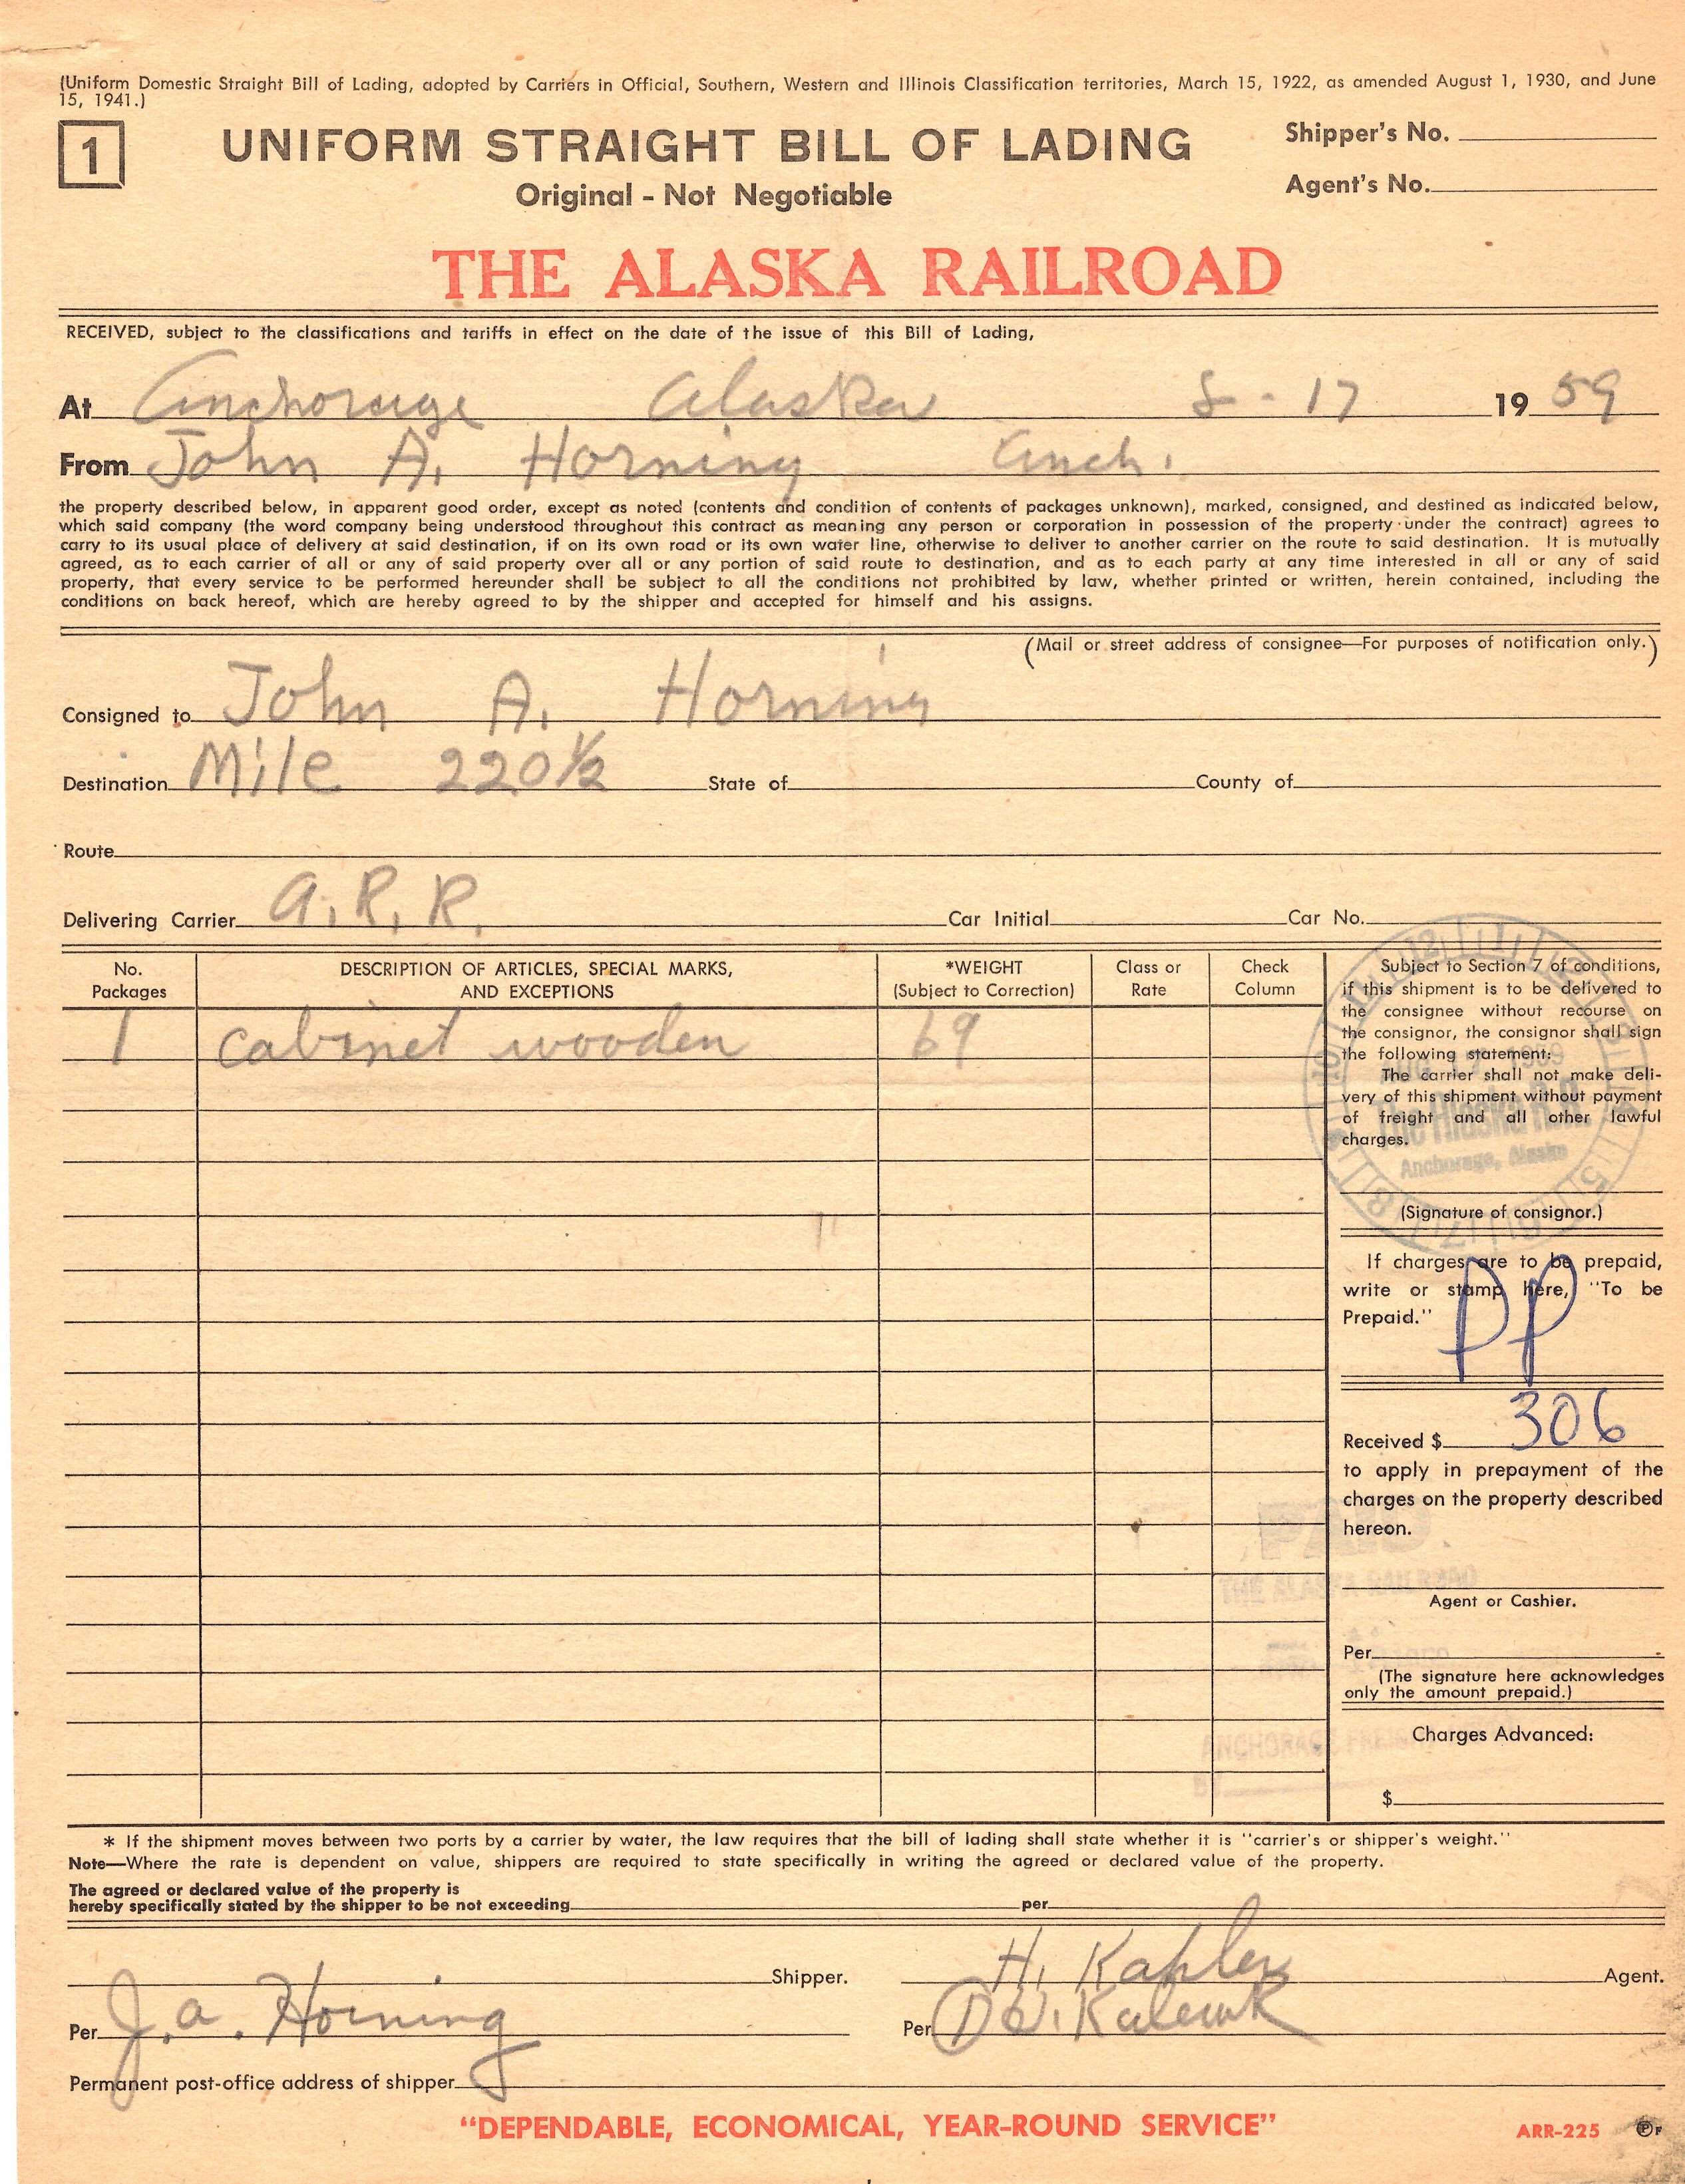 (Uniform Domestic Straight Bill of Lading, adopted by Carriers in Official, Southern, Western and Illinois Classification territories, March 15, 1922, as amended August 1, 1930, and June
15, 1941.)
1
UNIFORM STRAIGHT BILL OF LADING
Original - Not Negotiable
Shipper's No.
Agent's No.
THE ALASKA RAILROAD
RECEIVED, subject to the classifications and tariffs in effect on the date of the issue of this Bill of Lading,
At Anchorage Alaska 8-17 1959
From John A. Horning Anch.
the property described below, in apparent good order, except as noted (contents and condition of contents of packages unknown), marked, consigned, and destined as indicated below,
which said company (the word company being understood throughout this contract as meaning any person or corporation in possession of the property under the contract) agrees to
carry to its usual place of delivery at said destination, if on its own road or its own water line, otherwise to deliver to another carrier on the route to said destination. It is mutually
agreed, as to each carrier of all or any of said property over all or any portion of said route to destination, and as to each party at any time interested in all or any of said
property, that every service to be performed hereunder shall be subject to all the conditions not prohibited by law, whether printed or written, herein contained, including the
conditions on back hereof, which are hereby agreed to by the shipper and accepted for himself and his assigns.
(Mail or street address of consignee—For purposes of notification only.)
Consigned to John A. Horning
Destination Mile 220½ State of County of
Route
Delivering Carrier A.R.R. Car Initial Car No.
No.
Packages
DESCRIPTION OF ARTICLES, SPECIAL MARKS,
AND EXCEPTIONS
*WEIGHT
(Subject to Correction)
Class or
Rate
Check
Column
1 cabinet wooden 69
Subject to Section 7 of conditions,
if this shipment is to be delivered to
the consignee without recourse on
the consignor, the consignor shall sign
the following statement:
The carrier shall not make deli-
very of this shipment without payment
of freight and all other lawful
charges.
AUG 17 1959
The Alaska R.R.
Anchorage, Alaska
(Signature of consignor.)
If charges are to be prepaid,
write or stamp here, "To be
Prepaid."
PP
Received $ 306
to apply in prepayment of the
charges on the property described
hereon.
PAID
THE ALASKA RAILROAD
Agent or Cashier.
Per
(The signature here acknowledges
only the amount prepaid.)
Charges Advanced:
$
* If the shipment moves between two ports by a carrier by water, the law requires that the bill of lading shall state whether it is "carrier's or shipper's weight."
Note—Where the rate is dependent on value, shippers are required to state specifically in writing the agreed or declared value of the property.
The agreed or declared value of the property is
hereby specifically stated by the shipper to be not exceeding per
Shipper. H. Kahler Agent.
Per J.A. Horning Per
Permanent post-office address of shipper
"DEPENDABLE, ECONOMICAL, YEAR-ROUND SERVICE"
ARR-225